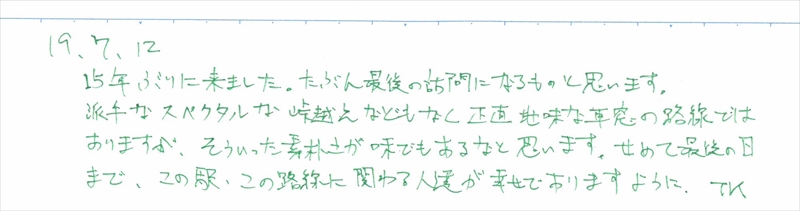 19.7.12
15年ぶりに来ました。たぶん最後の訪問になるものと思います。
派手なスペクタルな峠越えなどもなく正直地味な車窓の路線では
ありますが、そういった素朴さが味でもあるなと思います。せめて最後の日
まで、この駅、この路線に関わる人達が幸せでありますように. TK